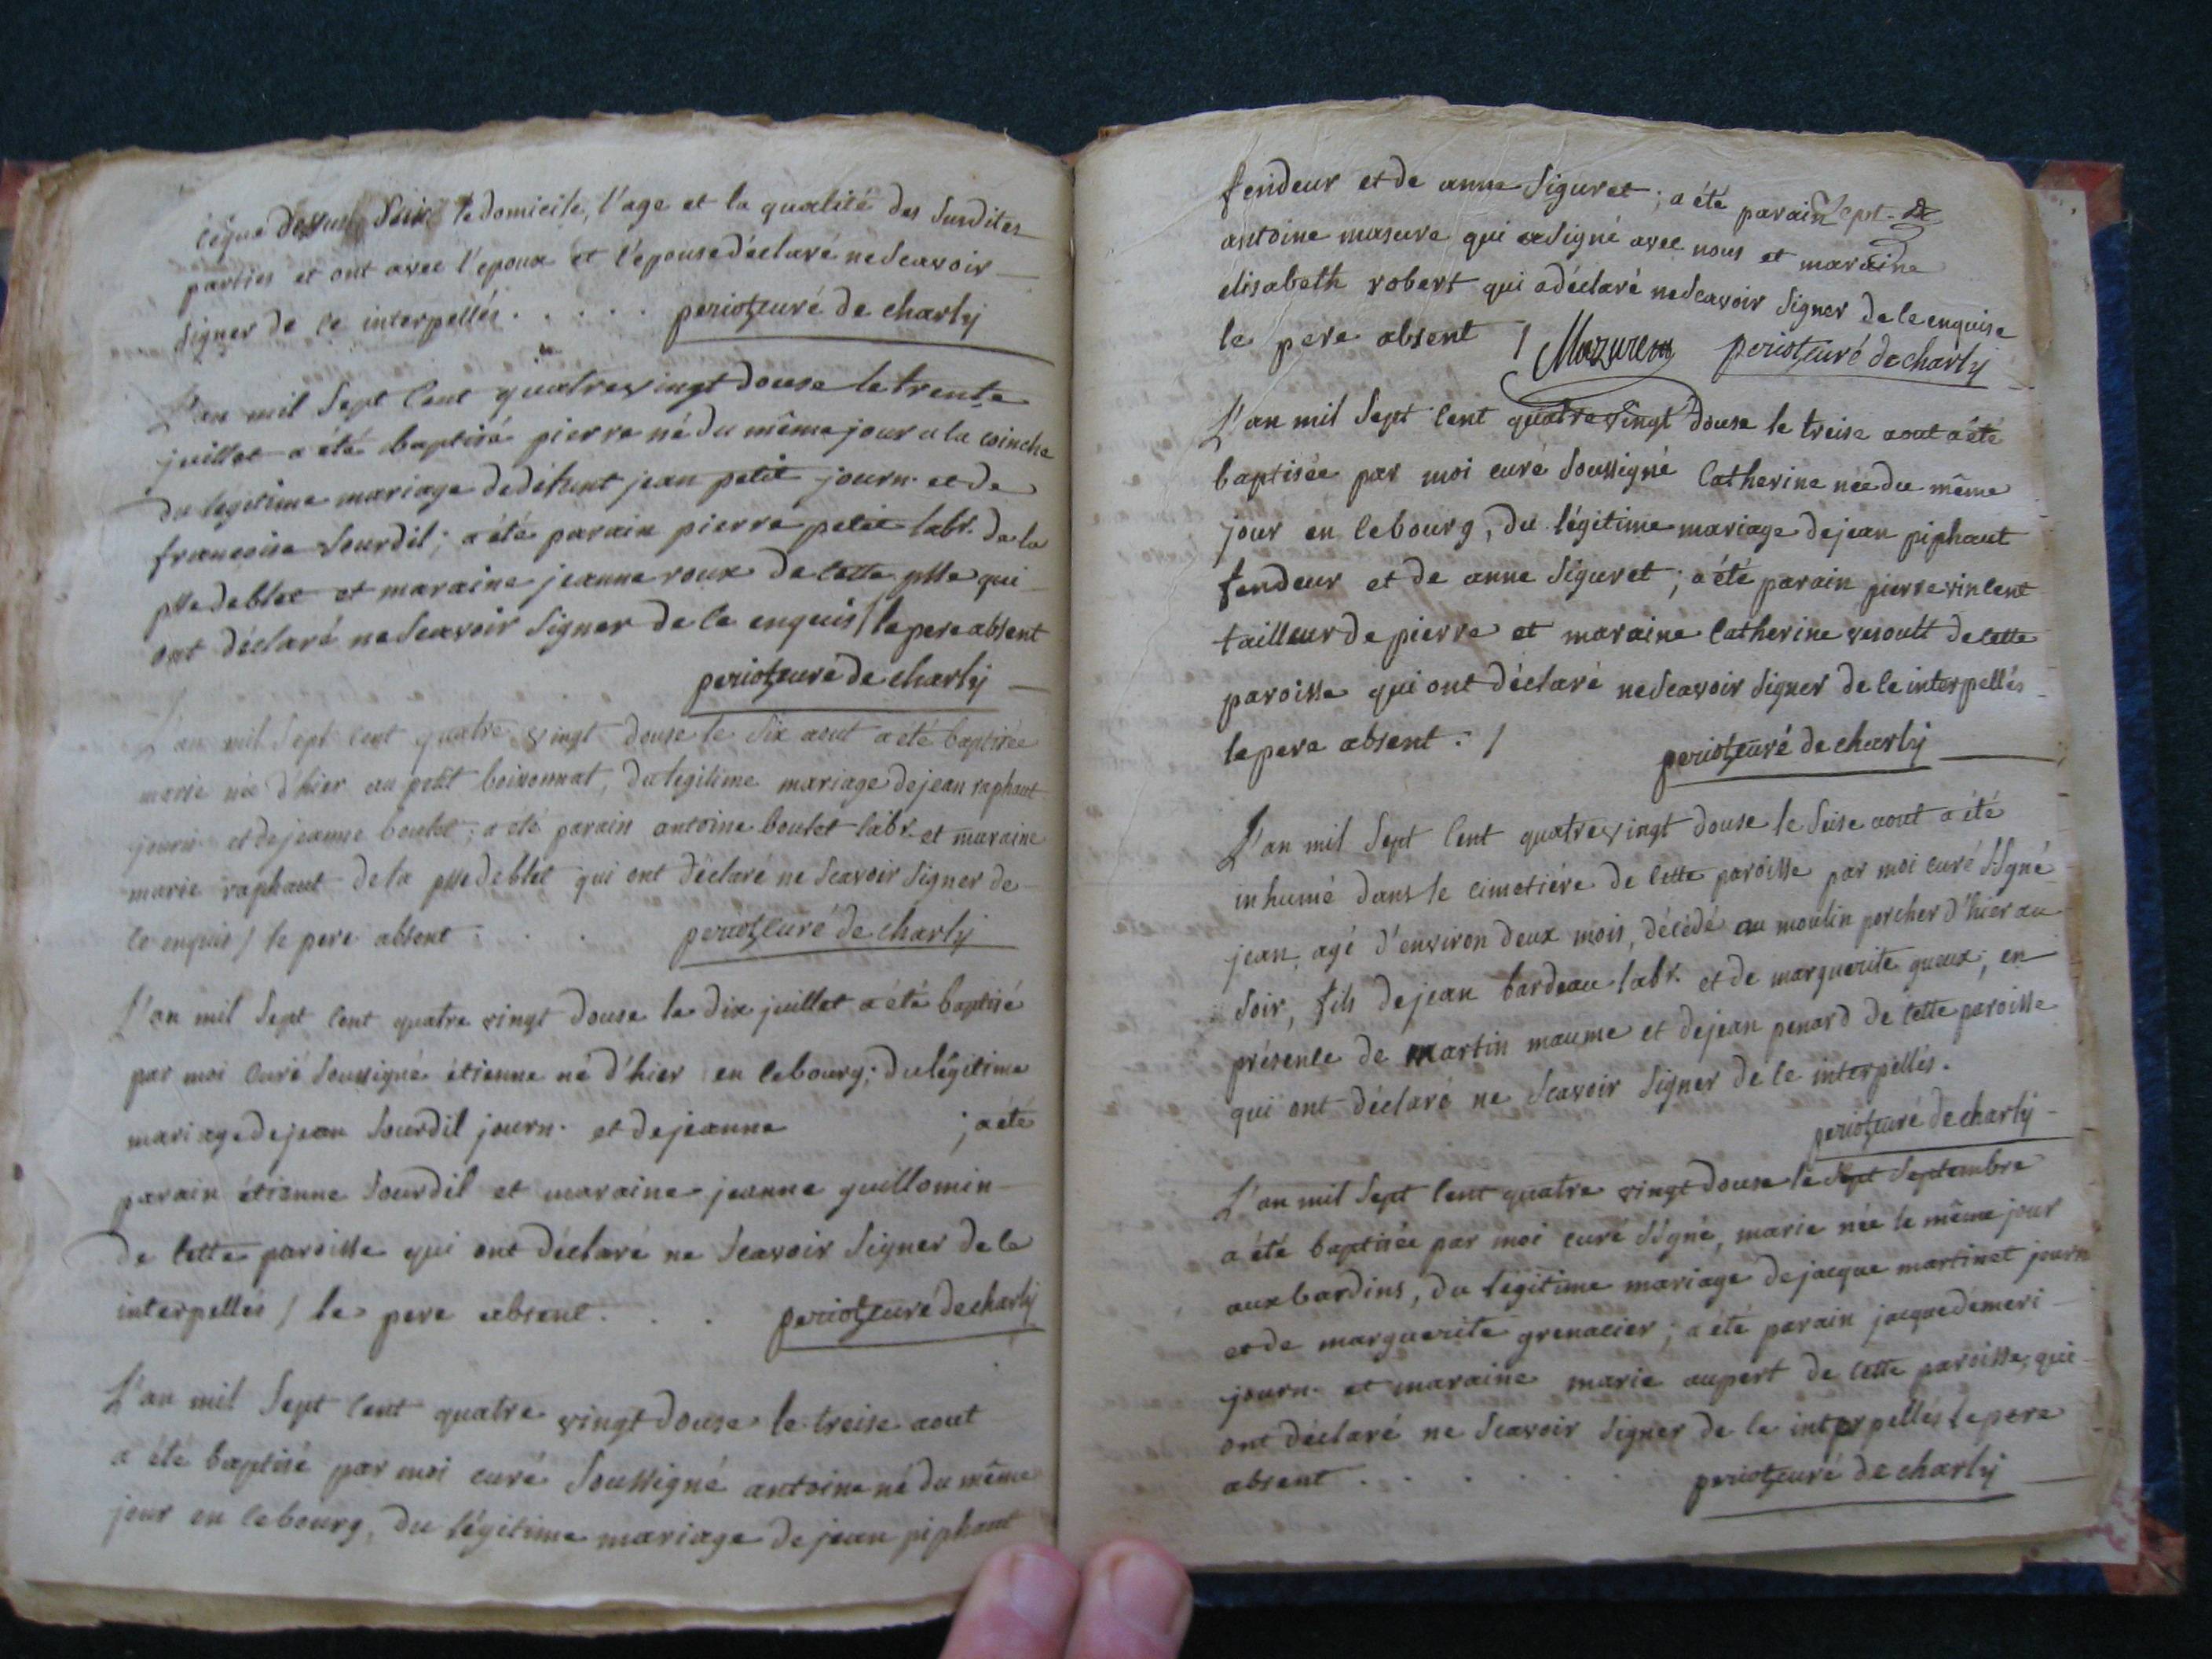 le domicile, l'age et la qualité des Susdites
parties et ont avec l'epoux et l'epouse déclaré ne Scavoir
Signer de ce interpellés . . . . . periot curé de charly
L'an mil Sept Cent quatre vingt douse le trente
juillet a été baptisé pierre né du même jour a la coinche
du legitime mariage de défunt jean petit journ. et de
francoise Sourdil ; a été parain pierre petit labr. de la
psse de blet et maraine jeanne roux de cette psse qui
ont déclaré ne Scavoir Signer de ce enquis / le pere absent
periot curé de charly
L'an mil Sept Cent quatre vingt douse le Six aout a été baptisée
marie née d'hier au petit boisonnat, du legitime mariage de jean raphaut
journ. et de jeanne boulet ; a été parain antoine boulet labr. et maraine
marie raphaut de la psse de blet qui ont déclaré ne Scavoir Signer de
ce enquis / le pere absent . . . periot curé de charly
L'an mil Sept Cent quatre vingt douse le dix juillet a été baptisé
par moi Curé Soussigné étienne né d'hier en ce bourg, du légitime
mariage de jean Sourdil journ. et de jeanne ; a été
parain étienne Sourdil et maraine jeanne guillomin
de Cette paroisse qui ont déclaré ne Scavoir Signer de ce
interpellés / le pere absent . . . periot curé de charly
L'an mil Sept Cent quatre vingt douse le treise aout
a été baptisé par moi curé Soussigné antoine né du même
jour en ce bourg, du légitime mariage de jean piphaut
fendeur et de anne Siguret ; a été parain Sept.
antoine masure qui a Signé avec nous et maraine
elisabeth robert qui a déclaré ne Scavoir Signer de ce enquise
le pere absent / Mazure periot curé de charly
L'an mil Sept Cent quatre vingt douse le treise aout a été
baptisée par moi curé Soussigné Catherine née du même
jour en ce bourg, du légitime mariage de jean piphaut
fendeur et de anne Siguret ; a été parain pierre vincent
tailleur de pierre et maraine Catherine vesoult de cette
paroisse qui ont déclaré ne Scavoir Signer de ce interpellés
le pere absent . / periot curé de charly
L'an mil Sept Cent quatre vingt douse le Seise aout a été
inhumé dans le cimetiére de Cette paroisse par moi curé SSgné
jean, agé d'environ deux mois, décédé au moulin porcher d'hier au
Soir, fils de jean bardeau labr. et de marguerite gueux, en
présence de martin maume et de jean penard de Cette paroisse
qui ont déclaré ne Scavoir Signer de ce interpellés.
periot curé de charly
L'an mil Sept Cent quatre vingt douse le Sept Septembre
a été baptisée par moi curé SSgné, marie née le même jour
aux bardins, du légitime mariage de jacque martinet journ
et de marguerite grenacier ; a été parain jacque démeri
journ. et maraine marie aupert de Cette paroisse, qui
ont déclaré ne Scavoir Signer de ce interpellés le pere
absent . . . . . . periot curé de charly